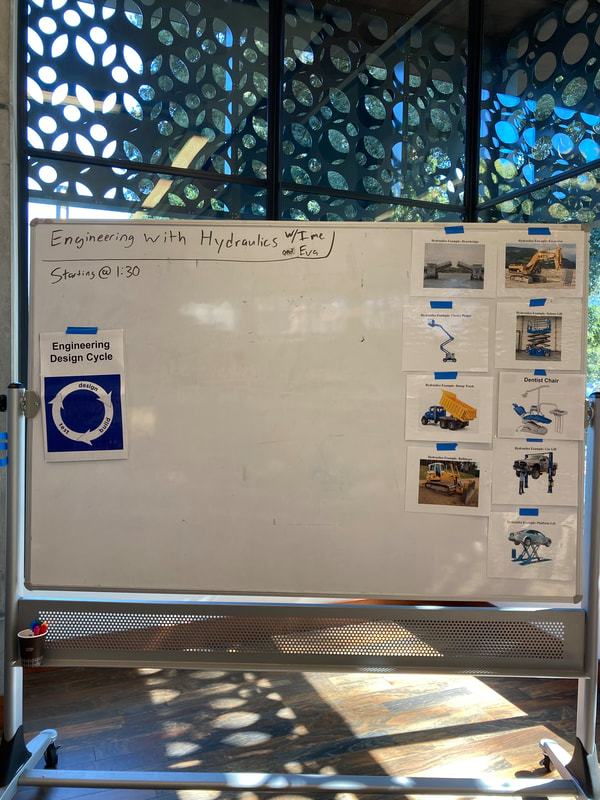 Engineering with Hydraulics w/Ime
and Eva
Starting @ 1:30
Engineering
Design Cycle
design
build
test
Hydraulics Example: Drawbridge
Hydraulics Example: Excavator
Hydraulics Example: Cherry Picker
Hydraulics Example: Scissor Lift
Hydraulics Example: Dump Truck
Dentist Chair
Hydraulics Example: Bulldozer
Hydraulics Example: Car Lift
Hydraulics Example: Platform Lift